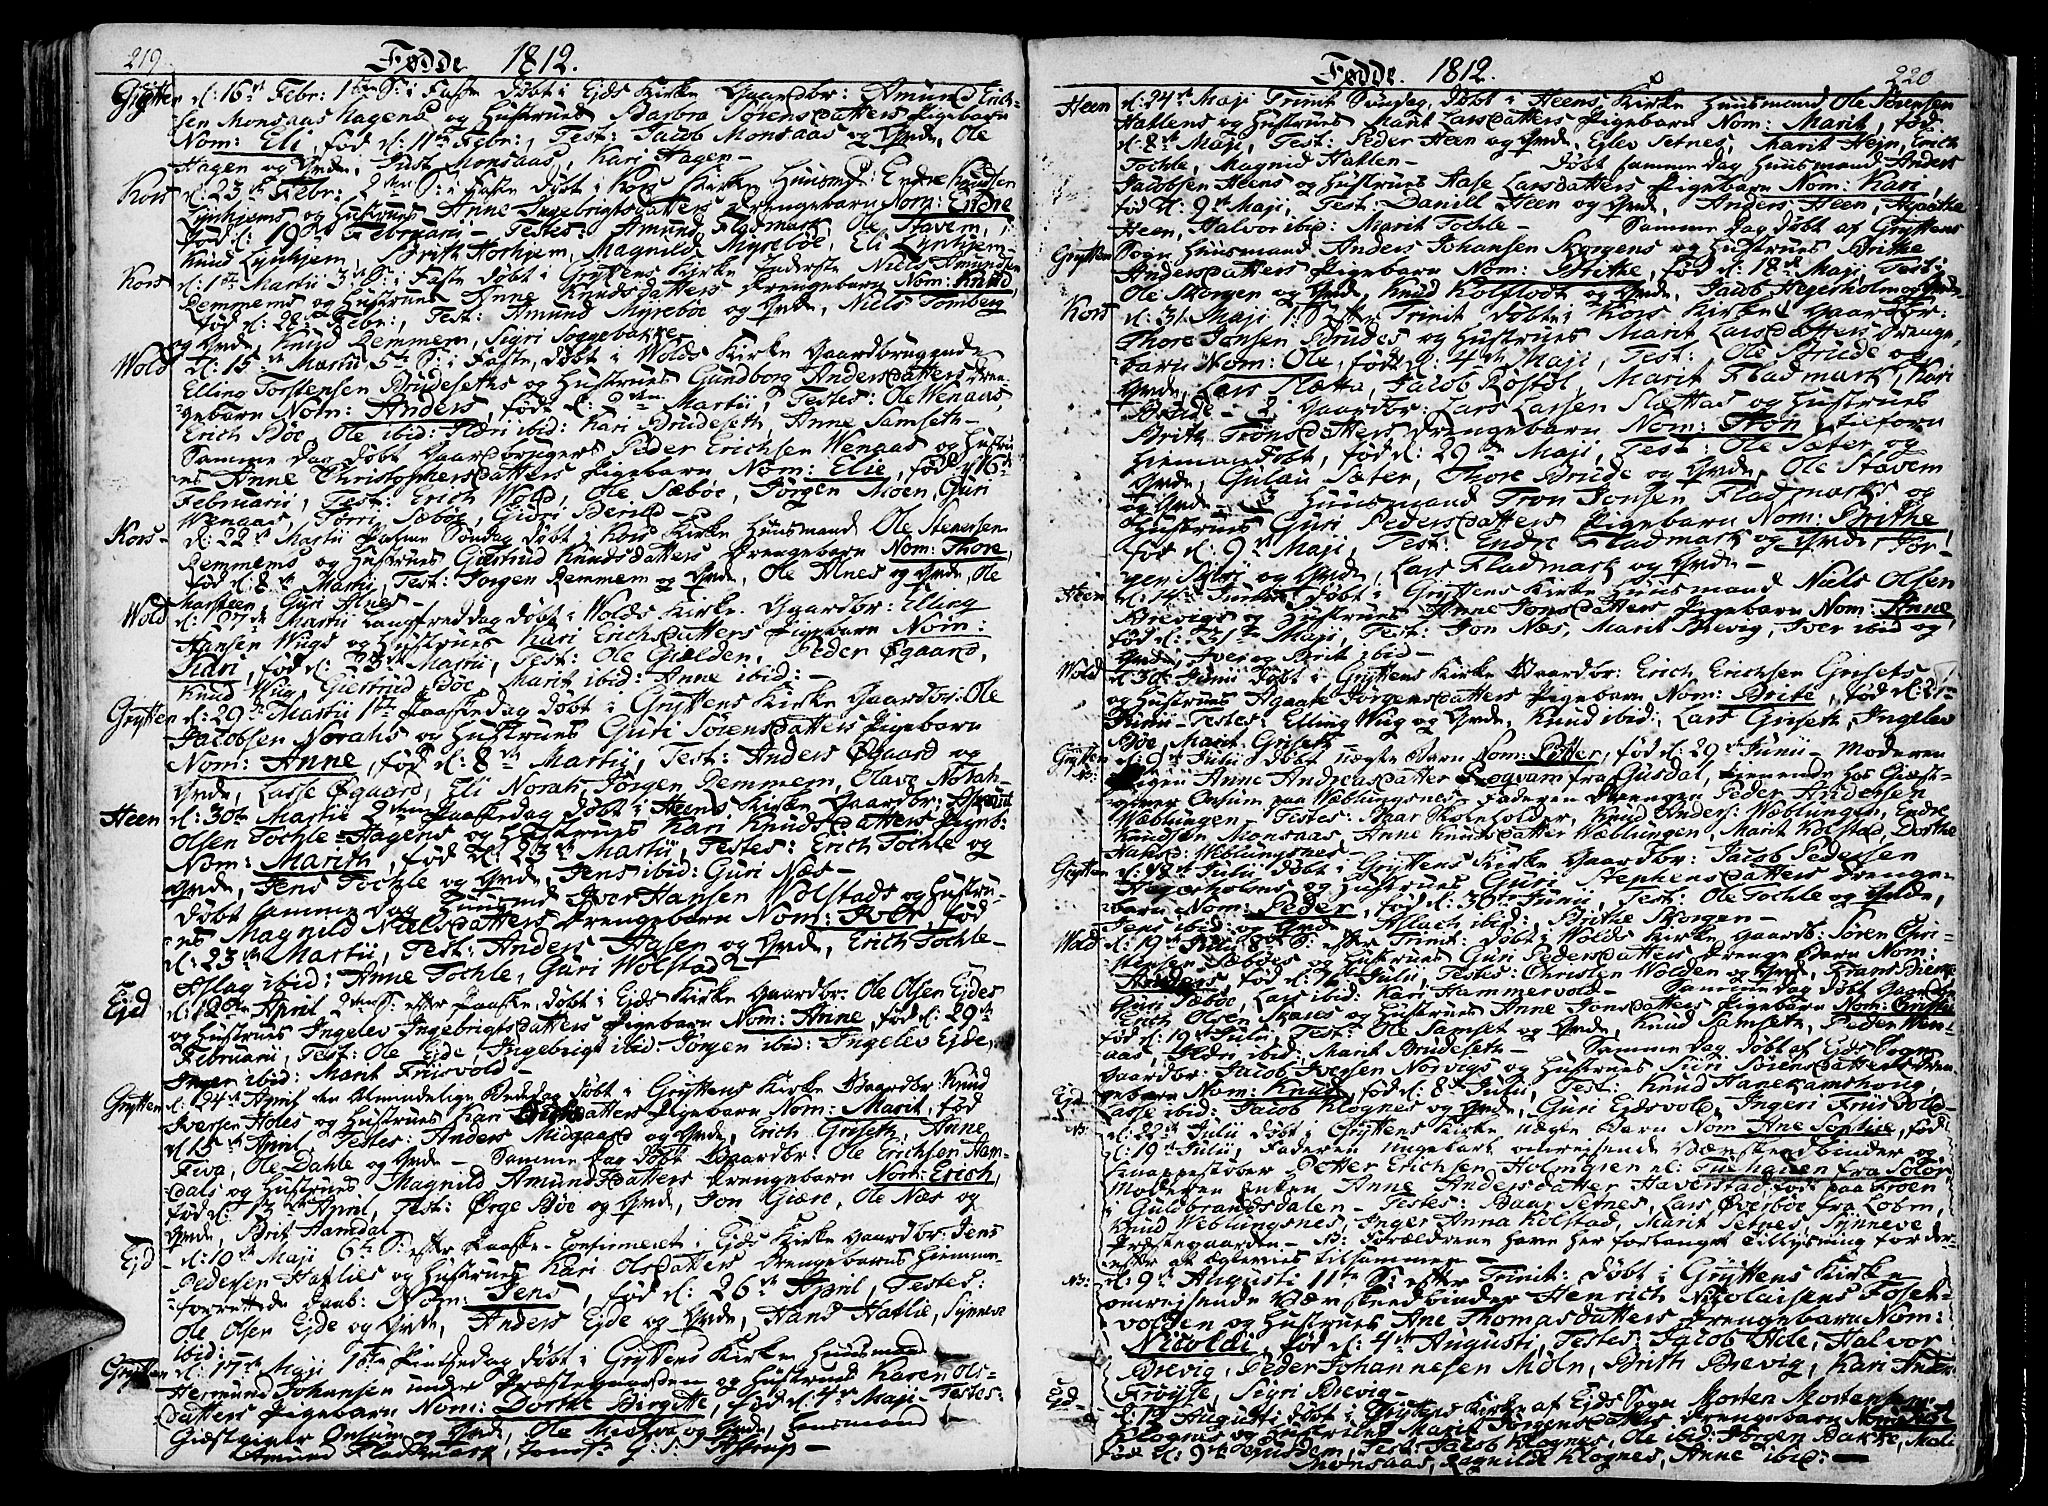 219
Fødde 1812.
Grytten d: 16de Febr: 1ste S: i Faste døbt i Ejds Kirke Gaardbr: Amund Erich-
sen Monsaas Hagens og Hustrues Barbra Sørensdatters Pigebarn
Nom: Eli, fød d: 11te Febr:, Test: Jacob Monsaas og Qvde, Ole
Hagen og Qvde, Monsaas, Kari Hagen -
Kors d: 23de Febr: 2den S: i Faste døbt i Kors Kirke Huusmd: Endre Knudsen
Lynhjems og Hustrues Anne Ingebrigtsdatters Drengebarn Nom: Endre
fød d: 19de Februarii - Testes: Amund Fladmark, Ole Stavem,
Knud Lynhjem, Brith Horhjem, Magnild Myrebøe, Eli Lynhjem -
Kors d: 1ste Martii 3die S: i Faste døbt i Gryttens Kirke Inderste Niels Amundsen
Remmems og Hustrues Anne Knudsdatters Drengebarn Nom: Knud,
fød d: 22de Febr:, Test: Amund Myrebøe og Qvde, Niels Tomberg
og Qvde, Knud Remmem, Sigri Soggebakke -
Wold d: 15de Martii 5te S: i Faste, døbt i Wolds Kirke Gaardbrugende
Elling Torstensen Brudeseths og Hustrues Gundborg Andersdatters Dren-
gebarn Nom: Anders, fød d: Martii, Testes: Ole Wenaas,
Erich Bøe, Ole ibid: Kari Brudeseth, Anne Samseth -
Samme Dag døbt Gaardbrugers Peder Erichsen Wenaas og Hustru-
es Anne Christophersdatters Pigebarn Nom: Elie, fød d: 16de
Februarii, Test: Erich Wold, Ole Sæbøe, Jørgen Moen, Guri
Wenaas, Sæbøe, Berild -
Kors - d: 22de Martii Palme Søndag døbt i Kors Kirke Huusmand Ole Stensen
Remmems og Hustrues Giertrud Knudsdatters Drengebarn Nom: Thore,
fød d: 8de Martii, Test: Jørgen Remmem og Qvde, Ole Alnes og Qvde, Ole
Marsteen, Guri Alnes -
Wold d: 27de Martii Langfreddag døbt i Wolds Kirke Gaardbr: Elling
Hansen Wugs og Hustrues Kari Erichsdatters Pigebarn Nom:
Kari, fød d: 23de Martii, Test: Ole Gielden, Peder Øgaard,
Knud Wug, Giertrud Bøe, Marit ibid: Anne ibid: -
Grytten d: 29de Martii 1ste Paaskedag døbt i Gryttens Kirke Gaardbr: Ole
Jacobsen Norahs og Hustrues Guri Sørensdatters Pigebarn
Nom: Anne, fød d: 8de Martii, Test: Anders Øgaard og
Qvde, Lasse Øgaard, Eli Norah, Jørgen Remmem, Olave Norah -
Heen d: 30te Martii 2den Paaskedag døbt i Heens Kirke Gaardbr:
Olsen Tochle-Hagens og Hustrues Kari Knudsdatters Pigeb:
Nom: Marith, fød d: 23de Martii, Testes: Erich Tochle og
Qvde, Jens Tochle og Qvde, Jens ibid: Guri Næs -
Døbt samme Dag Huusmd Iver Hansen Wolstads og Hustru-
es Magnild Nielsdatters Drengebarn Nom: Iver, fød
d: 23de Martii, Test: Anders og Qvde, Erich Tochle -
Aslag ibid: Anne Tochle, Guri Wolstad -
Ejd d: 12te April 2den S: efter Paaske, døbt i Ejds Kirke Gaardbr: Ole Olsen Ejdes
og Hustrues Ingelev Ingebrigtsdatters Pigebarn Nom: Anne, fød d: 29de
Februarii, Test: Ole Ejde, Ingebrigt ibid: Jørgen ibid: Ingelev Ejde,
Inger ibid: Marit Friisvold -
Grytten d: 24de April den Almindelige Bededag døbt i Gryttens Kirke Gaardbr: Knud
Iversen Holes og Hustrues Kari datters Pigebarn Nom: Marit, fød
d: 15de April, Testes: Anders Midgaard og Qvde, Erich Griseth, Anne
Fiva, Ole Dahle og Qvde - Samme Dag døbt Gaardbr: Ole Erichsen Ham-
dals og Hustrues Magnild Amundsdatters Drengebarn Nom: Erich,
fød d: 13de April, Test: Ørge Bøe og Qvde, Jon Giære, Ole Næs og
Qvde, Brit Hamdal -
Ejd - d: 10de Maji 6te S: efter Paaske - Confirmeret i Ejds Kirke Gaardbr: Jens
Pedersen Hatlies og Hustrues Kari Olsdatters Drengebarns Hiemme-
forrettede Daab: Nom: Jens, fød d: 26de April, Testes:
Ole Olsen Ejde og Qvde, Anders Ejde og Qvde, Hans Hatlie, Synneve
ibid:
Grytten d: 17de Maji 1ste Pintsedag døbt i Gryttens Kirke Huusmand
Hermund Johansen under Præstegaarden og Hustrues Karen Ols-
datters Pigebarn Nom: Dorthe Birgitte, fød d: 4de Maji - Testes:
Giæstgiver Onsum og Qvde, Ole og Qvde, Lensmand
Amund Fladmark, Astrup -

Fødde. 1812.
220
Heen d: 24de Maji Trinit: Søndag, døbt i Heens Kirke Huusmand Ole Sørensen
Hahlens og Hustrues Marit Larsdatters Pigebarn Nom: Marit, fød
d: 8de Maji, Test: Peder Heen og Qvde, Eylev Setnes, Marit Hejn, Erich
Tochle, Magnild Hahlen - Døbt samme Dag Huusmand Anders
Jacobsen Heens og Hustrues Aase Larsdatters Pigebarn Nom: Kari,
fød d: 9de Maji, Test: Daniel Heen og Qvde, Anders Heen, Agaathe
Heen, Halvor ibid: Marit Tochle - Samme Dag døbt af Gryttens
Grytten Sogn Huusmand Anders Johansen Skorgens og Hustrues Brithe
Andersdatters Pigebarn Nom: Brithe, fød d: 18de Maji, Test:
Ole Skorgen og Qvde, Knud Kolflodt og Qvde, Jacob Hegerholm og Qvde -
Kors d: 31. Maji 1. S: efter Trinit: døbt i Kors Kirke 1, Gaardbr:
Thore Jonsen Brudes og Hustrues Marit Larsdatters Drenge-
barn Nom: Ole, fød d: 4de Maji, Test: Ole Brude og
Qvde, Lars Slætta, Jacob Røstøl, Marit Fladmark, Kari
Brude - 2, Gaardbr: Lars Larsen Slættas og Hustrues
Brith Tronsdatters Drengebarn Nom: Tron, tilforn
hiemmedøbt, fød d: 29de Maji, Test: Ole Sæter og
Qvde, Gulau Sæter, Thore Brude og Qvde, Ole Stavem
og Qvde - 3, Huusmand Tron Jonsen Fladmarks og
Hustrues Guri Pedersdatters Pigebarn Nom: Brithe,
fød d: 9de Maji, Test: Endre Fladmark og Qvde, Jør-
gen Skiri og Qvde, Lars Fladmark og Qvde -
Heen d: 14de Junii døbt i Gryttens Kirke Huusmand Niels Olsen
Brevigs og Hustrues Anne Jonsdatters Pigebarn Nom: Anne,
fød d: 31te Maji, Test: Jon Næs, Marit Brevig, Iver ibid og
Qvde, Iver og Brit ibid -
Wold d: 30te Junii døbt i Gryttens Kirke Gaardbr: Erich Erichsen Grisets
og Hustrues Agaate Jørgensdatters Pigebarn Nom: Brite, fød d: 21de
Junii - Testes: Elling Wug og Qvde, Knud ibid: Lars Griseth, Ingelev
Bøe, Marit Griseth -
Grytten d: 9de Julii døbt uægte Barn Nom: Petter, fød d: 29de Junii - Moderen
NB: Pigen Anne Andreasdatter Sogvam fra Gusdal, tienende hos Giæst-
giver Onsum paa Wæblungsnes - Faderen Drengen Peder Andersen
Wæblungen - Testes: Baar Skieholder, Knud Anders: Wæblungen, Endre
Knudsen Monsaas, Anne Knutsdatter Wæblungen, Marit Kolstad, Dorthe
Hansd: Weblungsnes -
Grytten d: 18de Julii døbt i Gryttens Kirke Gaardbr: Jacob Pedersen
Hegerholms og Hustrues Guri Stephensdatters Drenge-
barn Nom: Peder, fød d: 30te Junii, Test: Ole Tochle og Qvde,
Jens ibid: og Qvde, Aslach ibid: Brithe Skorgen -
Wold d: 19de Julii 8de S: efter Trinit: døbt i Wolds Kirke Gaardb: Søren Chri-
stensen Sæbøes og Hustrues Guri Pedersdatters Drengebarn Nom:
Anders, fød d: Julii, Testes: Christen Wolden og Qvde, Frans
Guri Sæbøe, Lars ibid: Kari Hammervold - Samme Dag døbt Gaardbr:
Erich Olsen Skaars og Hustrues Anne Jonsdatters Pigebarn Nom:
fød d: 19de Julii, Test: Ole Samset og Qvde, Knud Samseth, Peder Wen-
aas, Ildri ibid: Marit Brudeseth - Samme Dag døbt af Ejds Sogn
Gaardbr: Jacob Iversen Norvigs og Hustrues Siri Sørensdatters Dren-
Ejd gebarn Nom: Knud, fød d: 8de Julii, Test: Knud Hanekamshoug,
Lasse ibid: Jacob Klognes og Qvde, Guri Ejdsvold, Ingeri Friisvold -
NB: d: 22de Julii døbt i Gryttens Kirke uægte Barn Nom: Ane Sophie, fød
d: 19de Julii, Faderen Ungekarl omreisende Væverskeebinder og
Knappestøber Petter Erichsen Holmgren el: fra Solør,
Moderen Enken Anne Andersdatter Haverstad, fød paa Froen
i Guldbrandsdalen - Testes: Baar Setnes, Lars Øverbøe fra Lom,
Knud Veblungsnes, Inger Anna Kolstad, Marit Setnes, Synneve
Præstegaarden - NB: Forældrene have her forlanget Tillysning for der-
efter at ægtevies tilsammen -
NB: d: 9de Augusti 11te S: efter Trinit: døbt i Gryttens Kirke
omreisende Væverskeebinder Henrich Nicolaisens Foset-
volden og Hustrues Ane Thomasdatters Drengebarn Nom:
Nicolai, fød d: 4de Augusti, Testes: Jacob Hole, Halvor
Brevig, Peder Johannesen Moln, Brith Brevig, Kari
Frøysse, Sigri Brevig -
Ejd - d: 12 Augusti døbt i Gryttens Kirke af Ejds Sogn Morten Mortensen
Klognes og Hustrues Marit Jørgensdatters Drengebarn
fød d: 9de Test: Jacob Klognes, Ole ibid: Jørgen Bakke,
Monsaas, Ragnild Klognes, Anne ibid: -